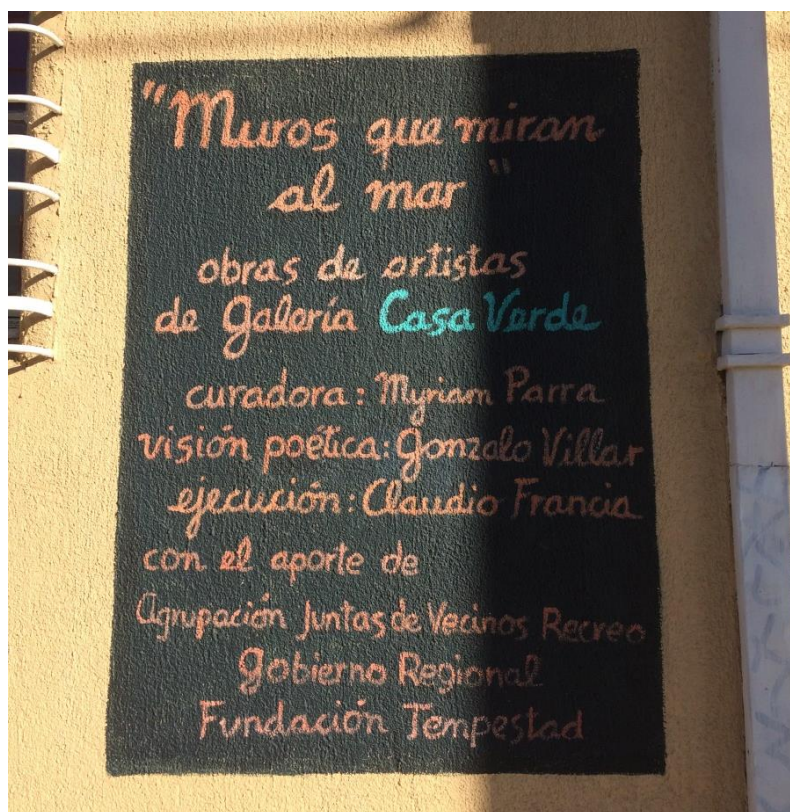 "Muros que miran
al mar"
obras de artistas
de Galería Casa Verde
curadora: Myriam Parra
visión poética: Gonzalo Villar
ejecución: Claudio Francia
con el aporte de
Agrupación Juntas de Vecinos Recreo
Gobierno Regional
Fundación Tempestad